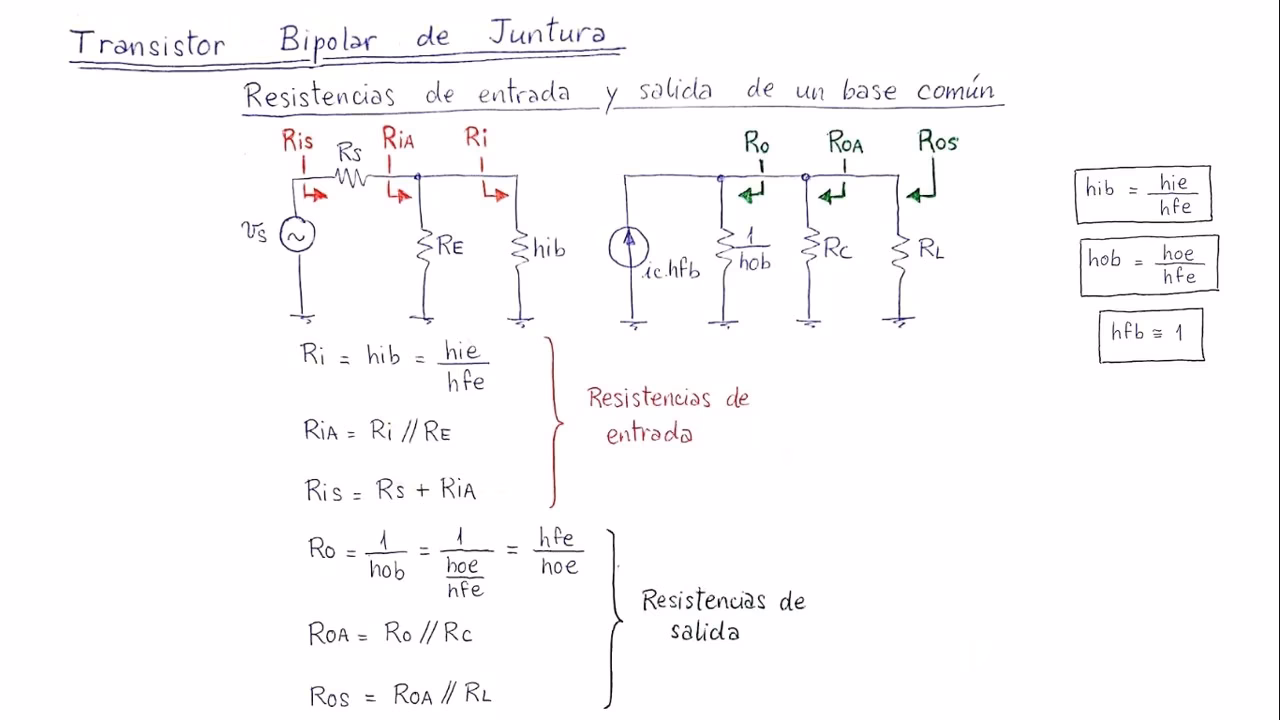 Transistor Bipolar de Juntura
Resistencias de entrada y salida de un base común
Ris Rs RiA Ri Ro ROA ROS
vs RE hib ic.hfb 1/hob RC RL
hib = hie/hfe
hob = hoe/hfe
hfb ≅ 1
Ri = hib = hie/hfe
RiA = Ri // RE
Ris = Rs + RiA
Resistencias de
entrada
Ro = 1/hob = 1/(hoe/hfe) = hfe/hoe
ROA = Ro // Rc
ROS = ROA // RL
Resistencias de
salida